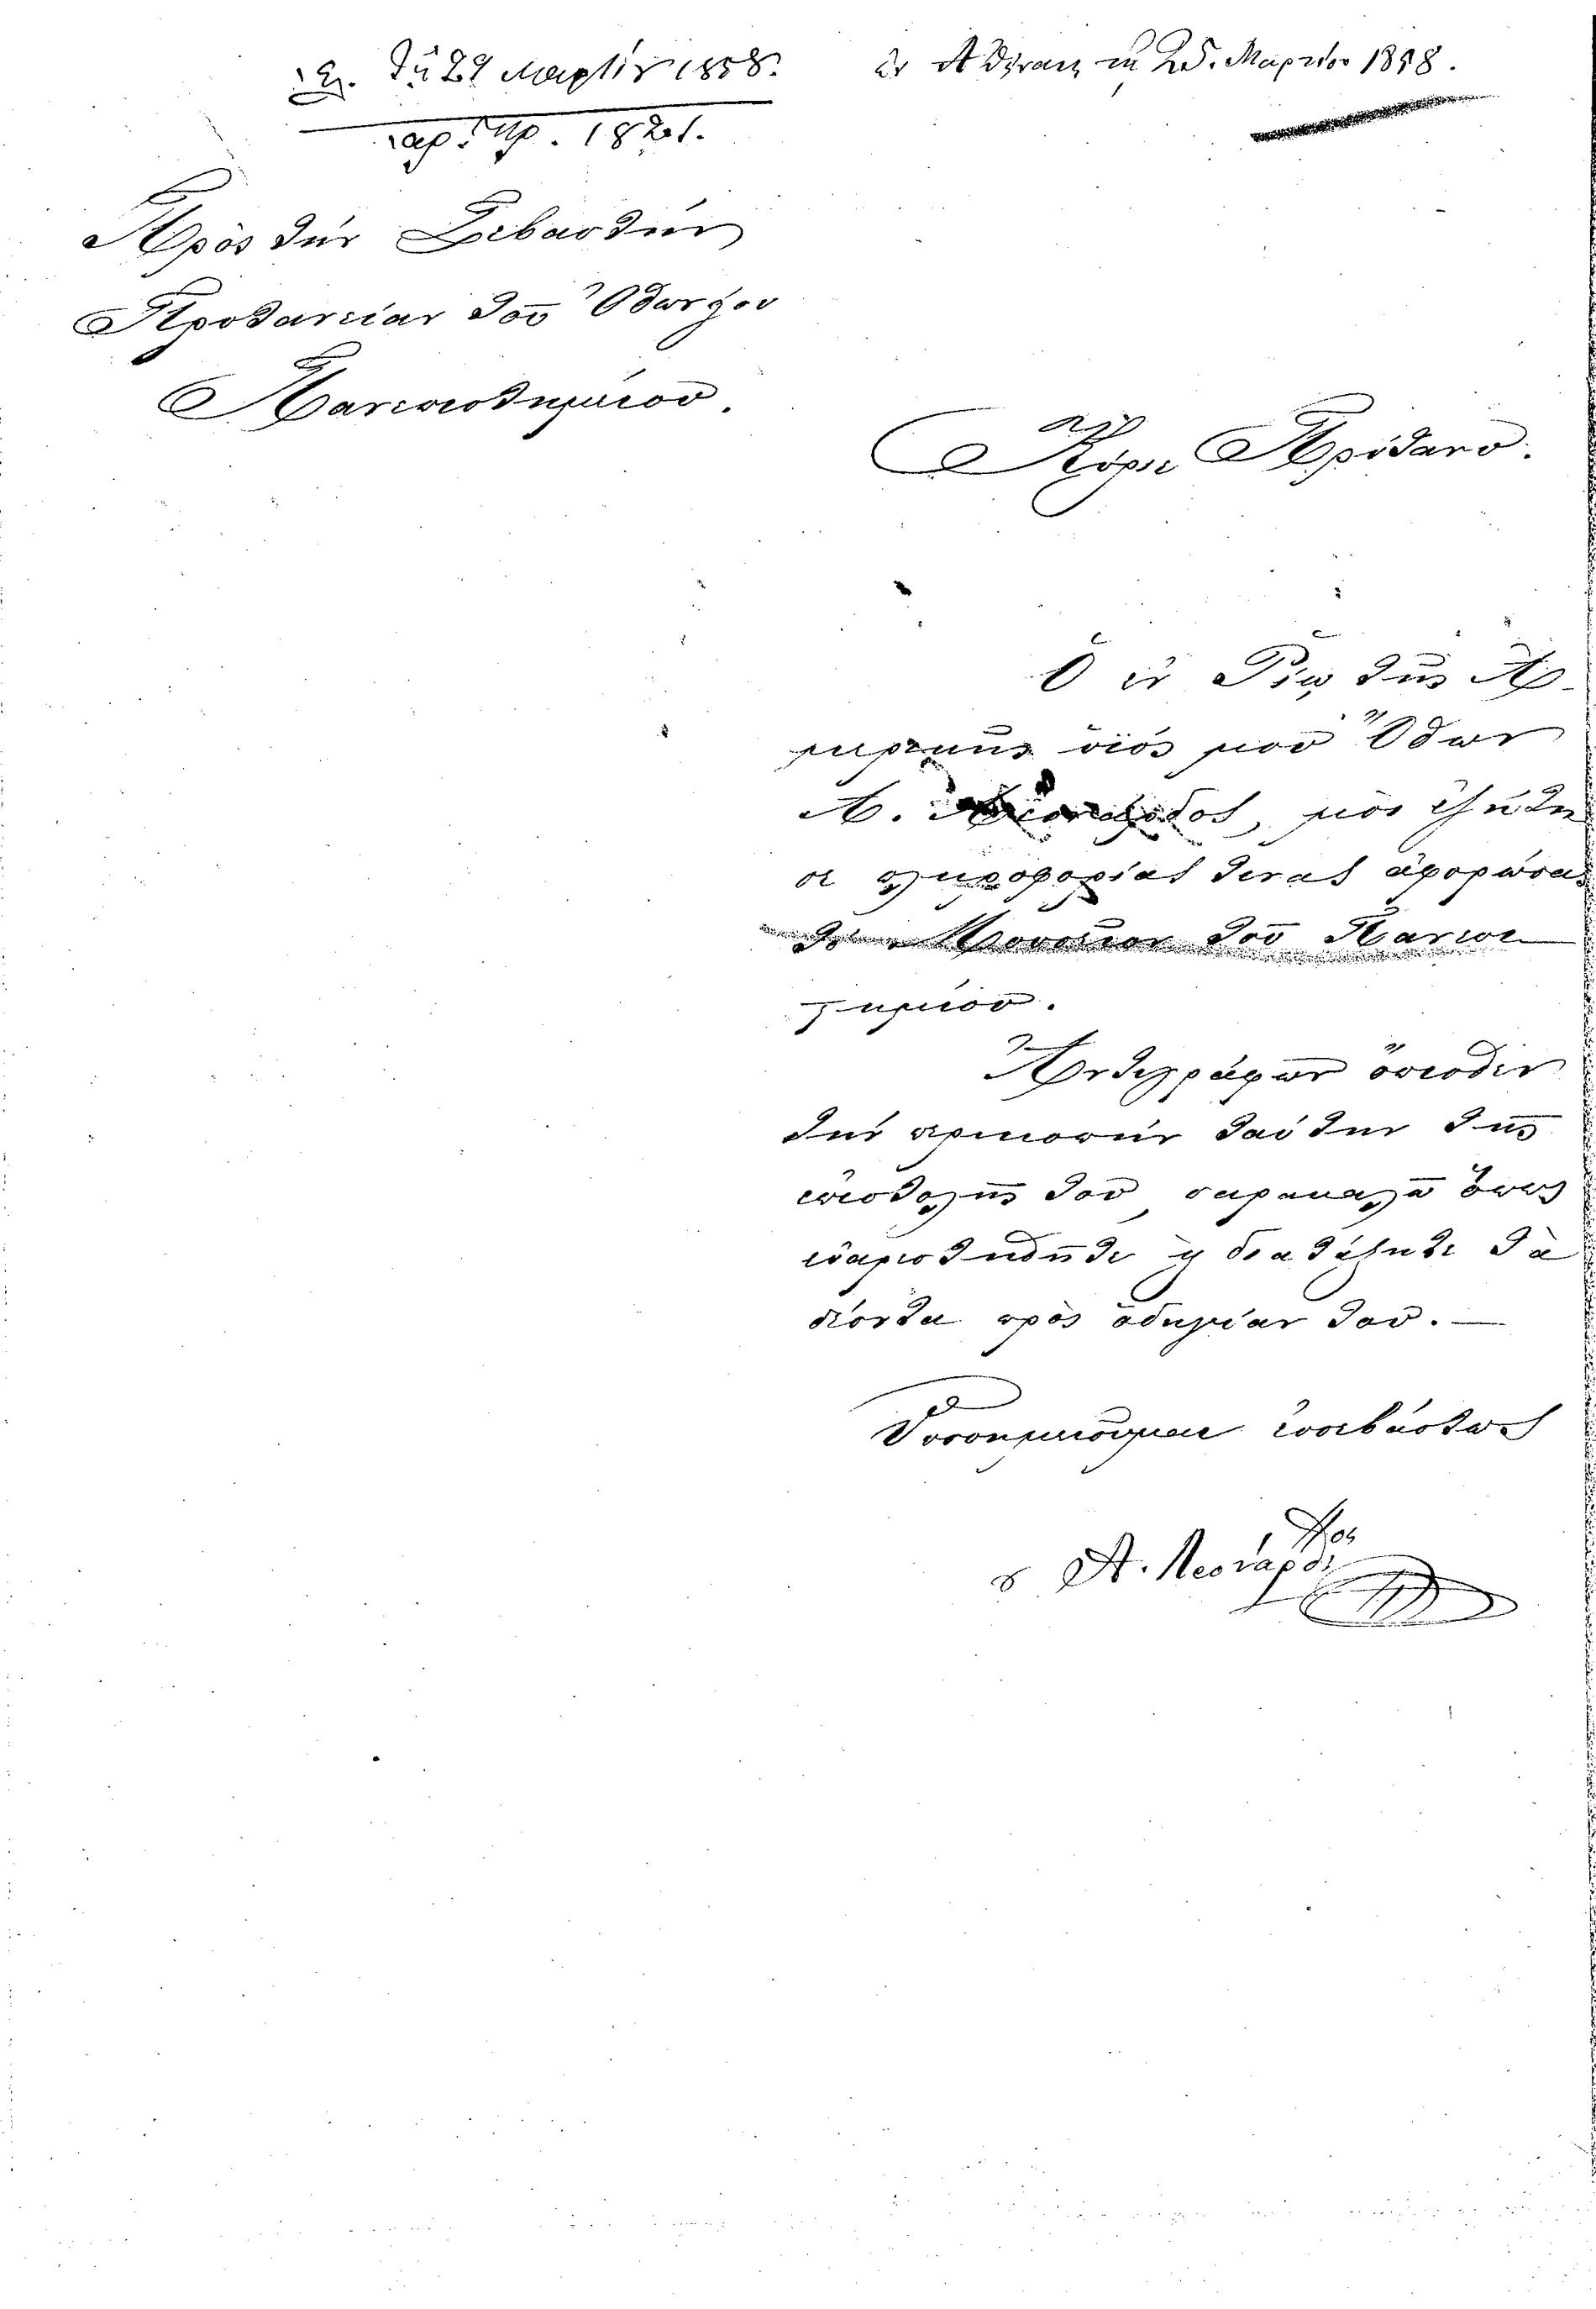 τῇ 29 Μαρτίου 1858.
Πρὸς τὴν Σεβαστὴν
Πρυτανείαν τοῦ Ὀθωνείου
Πανεπιστημίου.
ἐν Ἀθήναις τῇ 25. Μαρτίου 1858.
Κύριε Πρύτανι.
Ὁ ἐν Ῥίῳ τῆς Ἀ-
μερικῆς υἱός μου Ὄθων
Λ. Λεονάρδος, μοὶ ἐζήτη
σε πληροφορίας τινας ἀφορώσας
τὸ Μουσεῖον τοῦ Πανεπι
στημίου.
Ἀντιγράφων ὄπισθεν
τὴν περικοπὴν ταύτην τῆς
ἐπιστολῆς του παρακαλῶ ὅπως
εὐαρεστηθῆτε νὰ διατάξητε τὰ
δέοντα πρὸς ὁδηγίαν του.
Ὑποσημειοῦμαι εὐσεβάστως
ὁ Λ. Λεονάρδος